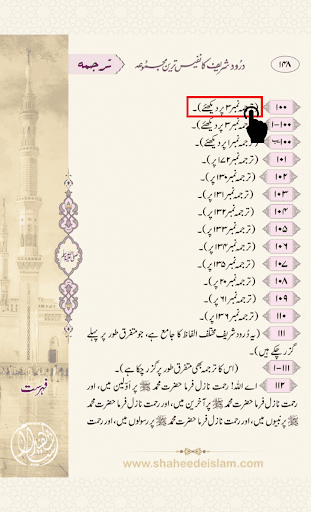 ۱۴۸ درُود شریف کا نفیس ترین مجموعہ ترجمہ
۱۰۰ (ترجمہ نمبر ۳ پر دیکھئے)۔
۱۰۰-۱ (ترجمہ نمبر ۳ پر دیکھئے)۔
۱۰۰-ب (ترجمہ نمبر ۱ پر دیکھئے)۔
۱۰۱ (ترجمہ نمبر ۱۷۲ پر)۔
۱۰۲ (ترجمہ نمبر ۱۳۰ پر)۔
۱۰۳ (ترجمہ نمبر ۱۳۱ پر)۔
۱۰۴ (ترجمہ نمبر ۱۳۲ پر)۔
۱۰۵ (ترجمہ نمبر ۱۳۳ پر)۔
۱۰۶ (ترجمہ نمبر ۱۳۴ پر)۔
۱۰۷ (ترجمہ نمبر ۱۳۵ پر)۔
۱۰۸ (ترجمہ نمبر ۲۰ پر)۔
۱۰۹ (ترجمہ نمبر ۶۱ پر)۔
۱۱۰ (ترجمہ نمبر ۱۳۶ پر)۔
۱۱۱ (یہ دُرود شریف مختلف الفاظ کا جامع ہے، جو متفرق طور پر پہلے
گزر چکے ہیں)۔
۱۱۱-۱ (اس کا ترجمہ بھی متفرق طور پر گزر چکا ہے)۔
۱۱۲ اے اللہ! رحمت نازل فرما حضرت محمد ﷺ پر اوّلین میں، اور
رحمت نازل فرما حضرت محمد ﷺ پر آخرین میں، اور رحمت نازل فرما حضرت محمد
ﷺ پر نبیوں میں، اور رحمت نازل فرما حضرت محمد ﷺ پر رسولوں میں، اور
فہرست
www.shaheedeislam.com